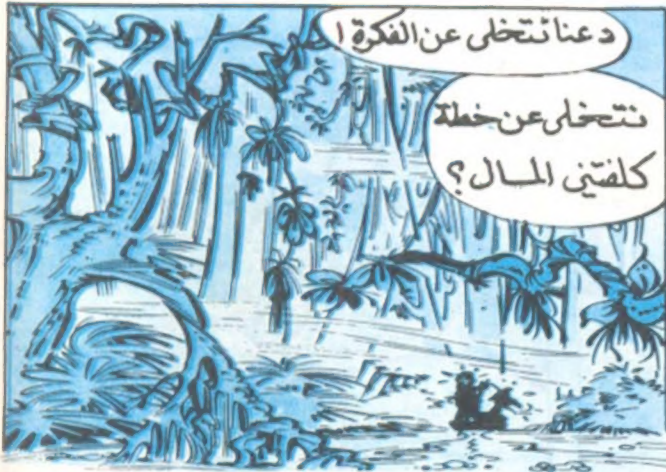 دعنا نتخلى عن الفكرة !
نتخلى عن خطة
كلفتني المال ؟